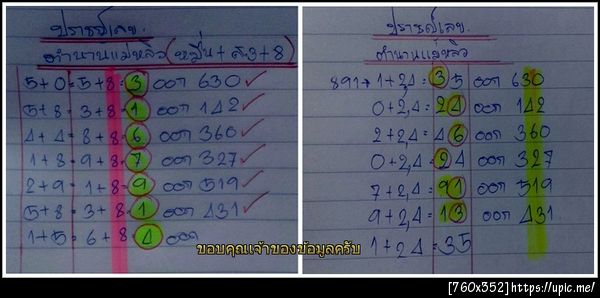 ปราชญ์เลข.
ตำนานแม่หลิว (หมื่น + ส.3+8)
5+0=5+8=3 ออก 630 ✓
5+8=3+8=1 ออก 142 ✓
4+4=8+8=6 ออก 360 ✓
1+8=9+8=7 ออก 327 ✓
2+9=1+8=9 ออก 519 ✓
5+8=3+8=1 ออก 431 ✓
1+5=6+8=4 ออก
ปราชญ์เลข.
ตำนานแม่หลิว
891→1+2,4=35 ออก 630
0+2,4=24 ออก 142
2+2,4=46 ออก 360
0+2,4=24 ออก 327
7+2,4=91 ออก 519
9+2,4=13 ออก 431
1+2,4=35
ขอบคุณเจ้าของข้อมูลครับ
[760x352]https://upic.me/